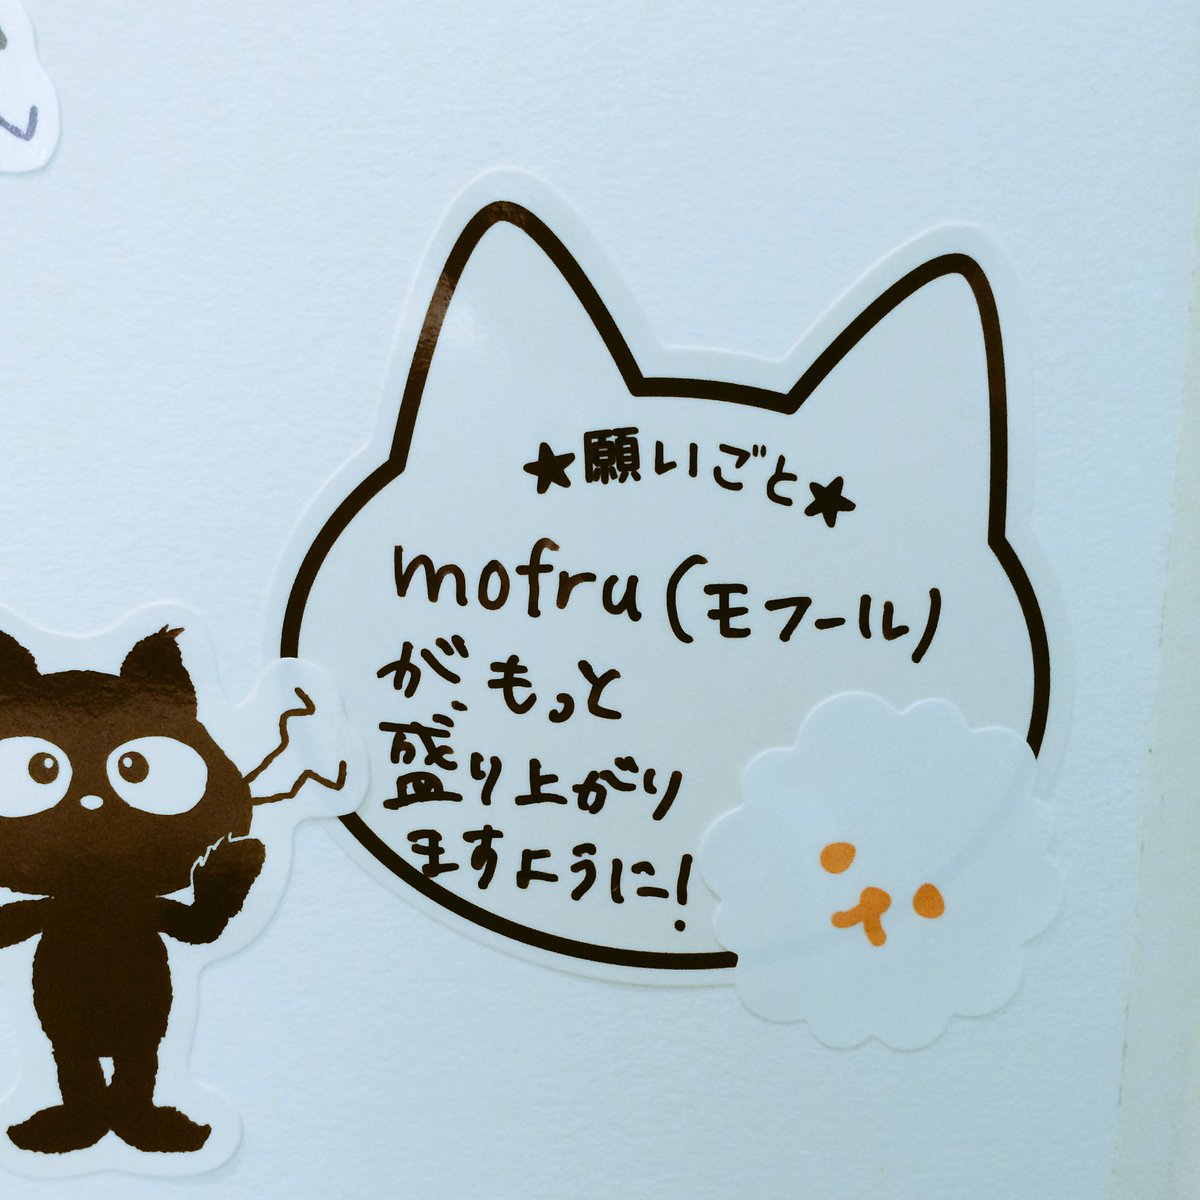 ★願いごと★
mofru(モフール)
が、もっと
盛り上がり
ますように!